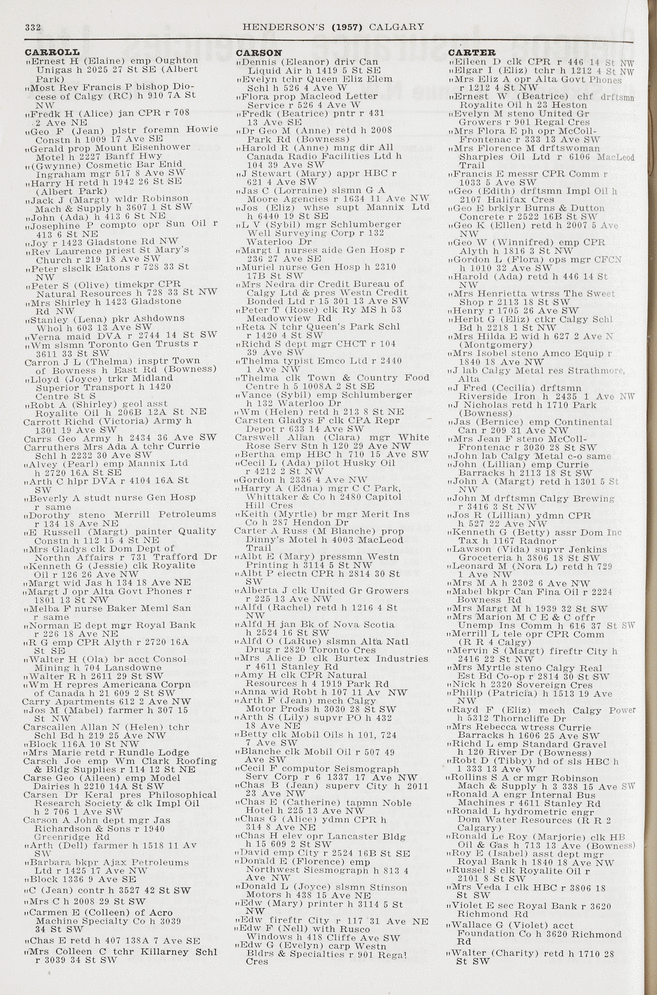 332
HENDERSON'S (1957) CALGARY
CARROLL
„Ernest H (Elaine) emp Oughton
Unigas h 2025 27 St SE (Albert
Park)
„Most Rev Francis P bishop Dio-
cese of Calgy (RC) h 910 7A St
NW
„Fredk H (Alice) jan CPR r 708
2 Ave NE
„Geo F (Jean) plstr foremn Howie
Constn h 1009 17 Ave SE
„Gerald prop Mount Eisenhower
Motel h 2227 Banff Hwy
„(Gwynne) Cosmetic Bar Enid
Ingraham mgr 517 8 Ave SW
„Harry H retd h 1942 26 St SE
(Albert Park)
„Jack J (Margt) wldr Robinson
Mach & Supply h 3607 1 St SW
„John (Ada) h 413 6 St NE
„Josephine P compto opr Sun Oil r
413 6 St NE
„Joy r 1423 Gladstone Rd NW
„Rev Laurence priest St Mary's
Church r 219 18 Ave SW
„Peter slsclk Eatons r 728 33 St
NW
„Peter S (Olive) timekpr CPR
Natural Resources h 728 33 St NW
„Mrs Shirley h 1423 Gladstone
Rd NW
„Stanley (Lena) pkr Ashdowns
Whol h 603 13 Ave SW
„Verna maid DVA r 2744 14 St SW
„Wm slsmn Toronto Gen Trusts r
3611 33 St SW
Carron J L (Thelma) insptr Town
of Bowness h East Rd (Bowness)
„Lloyd (Joyce) trkr Midland
Superior Transport h 1420
Centre St S
„Robt A (Shirley) geol asst
Royalite Oil h 206B 12A St NE
Carrott Richd (Victoria) Army h
1301 19 Ave SW
Carrs Geo Army h 2434 36 Ave SW
Carruthers Mrs Ada A tchr Currie
Schl h 2232 30 Ave SW
„Alvey (Pearl) emp Mannix Ltd
h 2720 16A St SE
„Arth C hlpr DVA r 4104 16A St
SW
„Beverly A studt nurse Gen Hosp
r same
„Dorothy steno Merrill Petroleums
r 134 18 Ave NE
„E Russell (Margt) painter Quality
Constn h 112 15 4 St NE
„Mrs Gladys clk Dom Dept of
Northn Affairs r 731 Trafford Dr
„Kenneth G (Jessie) clk Royalite
Oil r 126 26 Ave NW
„Margt wid Jas h 134 18 Ave NE
„Margt J opr Alta Govt Phones r
1801 13 St NW
„Melba F nurse Baker Meml San
r same
„Norman E dept mgr Royal Bank
r 226 18 Ave NE
„R G emp CPR Alyth r 2720 16A
St SE
„Walter H (Ola) br acct Consol
Mining h 704 Lansdowne
„Walter R h 2611 29 St SW
„Wm H repres Americana Corpn
of Canada h 21 609 2 St SW
Carry Apartments 612 2 Ave NW
„Jos M (Mabel) farmer h 207 15
St NW
Carscallen Allan N (Helen) tchr
Schl Bd h 219 25 Ave NW
„Block 116A 10 St NW
„Mrs Marie retd r Rundle Lodge
Carsch Joe emp Wm Clark Roofing
& Bldg Supplies r 114 12 St NE
Carse Geo (Aileen) emp Model
Dairies h 2210 14A St SW
Carsen Dr Keral pres Philosophical
Research Society & clk Impl Oil
h 2 706 1 Ave SW
Carson A John dept mgr Jas
Richardson & Sons r 1940
Greenridge Rd
„Arth (Dell) farmer h 1518 11 Av
SW
„Barbara bkpr Ajax Petroleums
Ltd r 1425 17 Ave NW
„Block 1336 9 Ave SE
„C (Jean) contr h 3527 42 St SW
„Mrs C h 2008 29 St SW
„Carmen E (Colleen) of Acro
Machine Specialty Co h 3039
34 St SW
„Chas E retd h 407 138A 7 Ave SE
„Mrs Colleen C tchr Killarney Schl
r 3039 34 St SW
CARSON
„Dennis (Eleanor) driv Can
Liquid Air h 1419 5 St SE
„Evelyn tchr Queen Eliz Elem
Schl h 526 4 Ave W
„Flora prop Macleod Letter
Service r 526 4 Ave W
„Fredk (Beatrice) pntr r 431
13 Ave SE
„Dr Geo M (Anne) retd h 2008
Park Rd (Bowness)
„Harold R (Anne) mng dir All
Canada Radio Facilities Ltd h
104 39 Ave SW
„J Stewart (Mary) appr HBC r
621 4 Ave SW
„Jas C (Lorraine) slsmn G A
Moore Agencies r 1634 11 Ave NW
„Jos (Eliz) whse supt Mannix Ltd
h 6440 19 St SE
„L V (Sybil) mgr Schlumberger
Well Surveying Corp r 132
Waterloo Dr
„Margt I nurses aide Gen Hosp r
236 27 Ave SE
„Muriel nurse Gen Hosp h 2310
17B St SW
„Mrs Nedra dir Credit Bureau of
Calgy Ltd & pres Westn Credit
Bonded Ltd r 15 301 13 Ave SW
„Peter T (Rose) clk Ry MS h 53
Meadowview Rd
„Reta N tchr Queen's Park Schl
r 1420 4 St SW
„Richd S dept mgr CHCT r 104
39 Ave SW
„Thelma typist Emco Ltd r 2440
1 Ave NW
„Thelma clk Town & Country Food
Centre h 5 1008A 2 St SE
„Vance (Sybil) emp Schlumberger
h 132 Waterloo Dr
„Wm (Helen) retd h 213 8 St NE
Carsten Gladys F clk CPA Repr
Depot r 633 14 Ave SW
Carswell Allan (Clara) mgr White
Rose Serv Stn h 120 29 Ave NW
„Bertha emp HBC h 710 15 Ave SW
„Cecil L (Ada) pilot Husky Oil
r 4212 2 St NW
„Gordon h 2336 4 Ave NW
„Harry A (Edna) mgr C C Park,
Whittaker & Co h 2480 Capitol
Hill Cres
„Keith (Myrtle) br mgr Merit Ins
Co h 287 Hendon Dr
Carter A Russ (M Blanche) prop
Dinny's Motel h 4003 MacLeod
Trail
„Albt E (Mary) pressmn Westn
Printing h 3114 5 St NW
„Albt P electn CPR h 2814 30 St
SW
„Alberta J clk United Gr Growers
r 225 13 Ave NW
„Alfd (Rachel) retd h 1216 4 St
NW
„Alfd H jan Bk of Nova Scotia
h 2524 16 St SW
„Alfd O (LaRue) slsmn Alta Natl
Drug r 2820 Toronto Cres
„Mrs Alice D clk Burtex Industries
r 4611 Stanley Rd
„Amy H clk CPR Natural
Resources h 4 1919 Park Rd
„Anna wid Robt h 107 11 Av NW
„Arth F (Jean) mech Calgy
Motor Prods h 3030 28 St SW
„Arth S (Lily) supvr PO h 432
18 Ave NE
„Betty clk Mobil Oils h 101, 724
7 Ave SW
„Blanche clk Mobil Oil r 507 49
Ave SW
„Cecil F computor Seismograph
Serv Corp r 6 1337 17 Ave NW
„Chas B (Jean) superv City h 2011
23 Ave NW
„Chas E (Catherine) tapmn Noble
Hotel h 225 13 Ave NW
„Chas G (Alice) ydmn CPR h
314 8 Ave NE
„Chas H elev opr Lancaster Bldg
h 15 609 2 St SW
„David emp City r 2524 16B St SE
„Donald E (Florence) emp
Northwest Siesmograph h 813 4
Ave NW
„Donald L (Joyce) slsmn Stinson
Motors h 438 15 Ave NE
„Edw (Mary) printer h 3114 5 St
NW
„Edw fireftr City r 117 31 Ave NE
„Edw F (Nell) with Rusco
Windows h 418 Cliffe Ave SW
„Edw G (Evelyn) carp Westn
Bldrs & Specialties r 901 Regal
Cres
CARTER
„Eileen D clk CPR r 446 14 St NW
„Elgar I (Eliz) tchr h 1212 4 St NW
„Mrs Eliz A opr Alta Govt Phones
r 1212 4 St NW
„Ernest W (Beatrice) chf drftsmn
Royalite Oil h 23 Heston
„Evelyn M steno United Gr
Growers r 901 Regal Cres
„Mrs Flora E ph opr McColl-
Frontenac r 333 13 Ave SW
„Mrs Florence M drftswoman
Sharples Oil Ltd r 6106 MacLeod
Trail
„Francis E messr CPR Comm r
1033 5 Ave SW
„Geo (Edith) drftsmn Impl Oil h
2107 Halifax Cres
„Geo E brklyr Burns & Dutton
Concrete r 2522 16B St SW
„Geo K (Ellen) retd h 2007 5 Ave
NW
„Geo W (Winnifred) emp CPR
Alyth h 1816 3 St NW
„Gordon L (Flora) ops mgr CFCN
h 1010 32 Ave SW
„Harold (Ada) retd h 446 14 St
NW
„Mrs Henrietta wtrss The Sweet
Shop r 2113 18 St SW
„Henry r 1705 26 Ave SW
„Herbt G (Eliz) ctkr Calgy Schl
Bd h 2218 1 St NW
„Mrs Hilda E wid h 627 2 Ave N
(Montgomery)
„Mrs Isobel steno Amco Equip r
1840 18 Ave NW
„J lab Calgy Metal res Strathmore,
Alta
„J Fred (Cecilia) drftsmn
Riverside Iron h 2435 1 Ave NW
„J Nicholas retd h 1710 Park
(Bowness)
„Jas (Bernice) emp Continental
Can r 209 31 Ave NW
„Mrs Jean F steno McColl-
Frontenac r 3030 28 St SW
„John lab Calgy Metal c-o same
„John (Lillian) emp Currie
Barracks h 2113 18 St SW
„John A (Margt) retd h 1301 5 St
NW
„John M drftsmn Calgy Brewing
r 3416 3 St NW
„Jos R (Lillian) ydmn CPR
h 527 22 Ave NW
„Kenneth G (Betty) assr Dom Inc
Tax h 1167 Radnor
„Lawson (Vida) supvr Jenkins
Groceteria h 3806 18 St SW
„Leonard M (Nora L) retd h 729
1 Ave NW
„Mrs M A h 2302 6 Ave NW
„Mabel bkpr Can Fina Oil r 2224
Bowness Rd
„Mrs Margt M h 1939 32 St SW
„Mrs Marion M C E & C offr
Unemp Ins Comm h 616 37 St SW
„Merrill L tele opr CPR Comm
(R R 4 Calgy)
„Mervin S (Margt) fireftr City h
2416 22 St NW
„Mrs Myrtle steno Calgy Real
Est Bd Co-op r 2814 30 St SW
„Nick h 2320 Sovereign Cres
„Philip (Patricia) h 1513 19 Ave
NW
„Rayd F (Eliz) mech Calgy Power
h 5312 Thorncliffe Dr
„Mrs Rebecca wtress Currie
Barracks h 1606 25 Ave SW
„Richd L emp Standard Gravel
h 120 River Dr (Bowness)
„Robt D (Tibby) hd of sls HBC h
1 333 13 Ave W
„Rollins S A cr mgr Robinson
Mach & Supply h 3 338 15 Ave SW
„Ronald A engr Internal Bus
Machines r 4611 Stanley Rd
„Ronald L hydrometric engr
Dom Water Resources (R R 2
Calgary)
„Ronald Le Roy (Marjorie) clk HB
Oil & Gas h 713 13 Ave (Bowness)
„Roy E (Isabel) asst dept mgr
Royal Bank h 1840 18 Ave NW
„Russel S clk Royalite Oil r
2101 8 St SW
„Mrs Veda I clk HBC r 3806 18
St SW
„Violet E sec Royal Bank r 3620
Richmond Rd
„Wallace G (Violet) acct
Foundation Co h 3620 Richmond
Rd
„Walter (Charity) retd h 1710 28
St SW